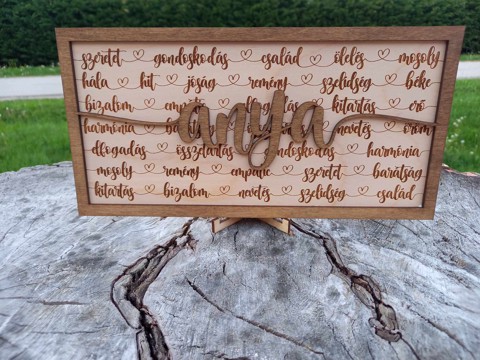 szeretet gondoskodás család ölelés mosoly
hála hit jóság remény szelídség béke
bizalom kitartás erő
anya
harmónia nevetés öröm
elfogadás összetartás harmónia
mosoly remény empátia szeretet barátság
kitartás bizalom nevetés szelídség család